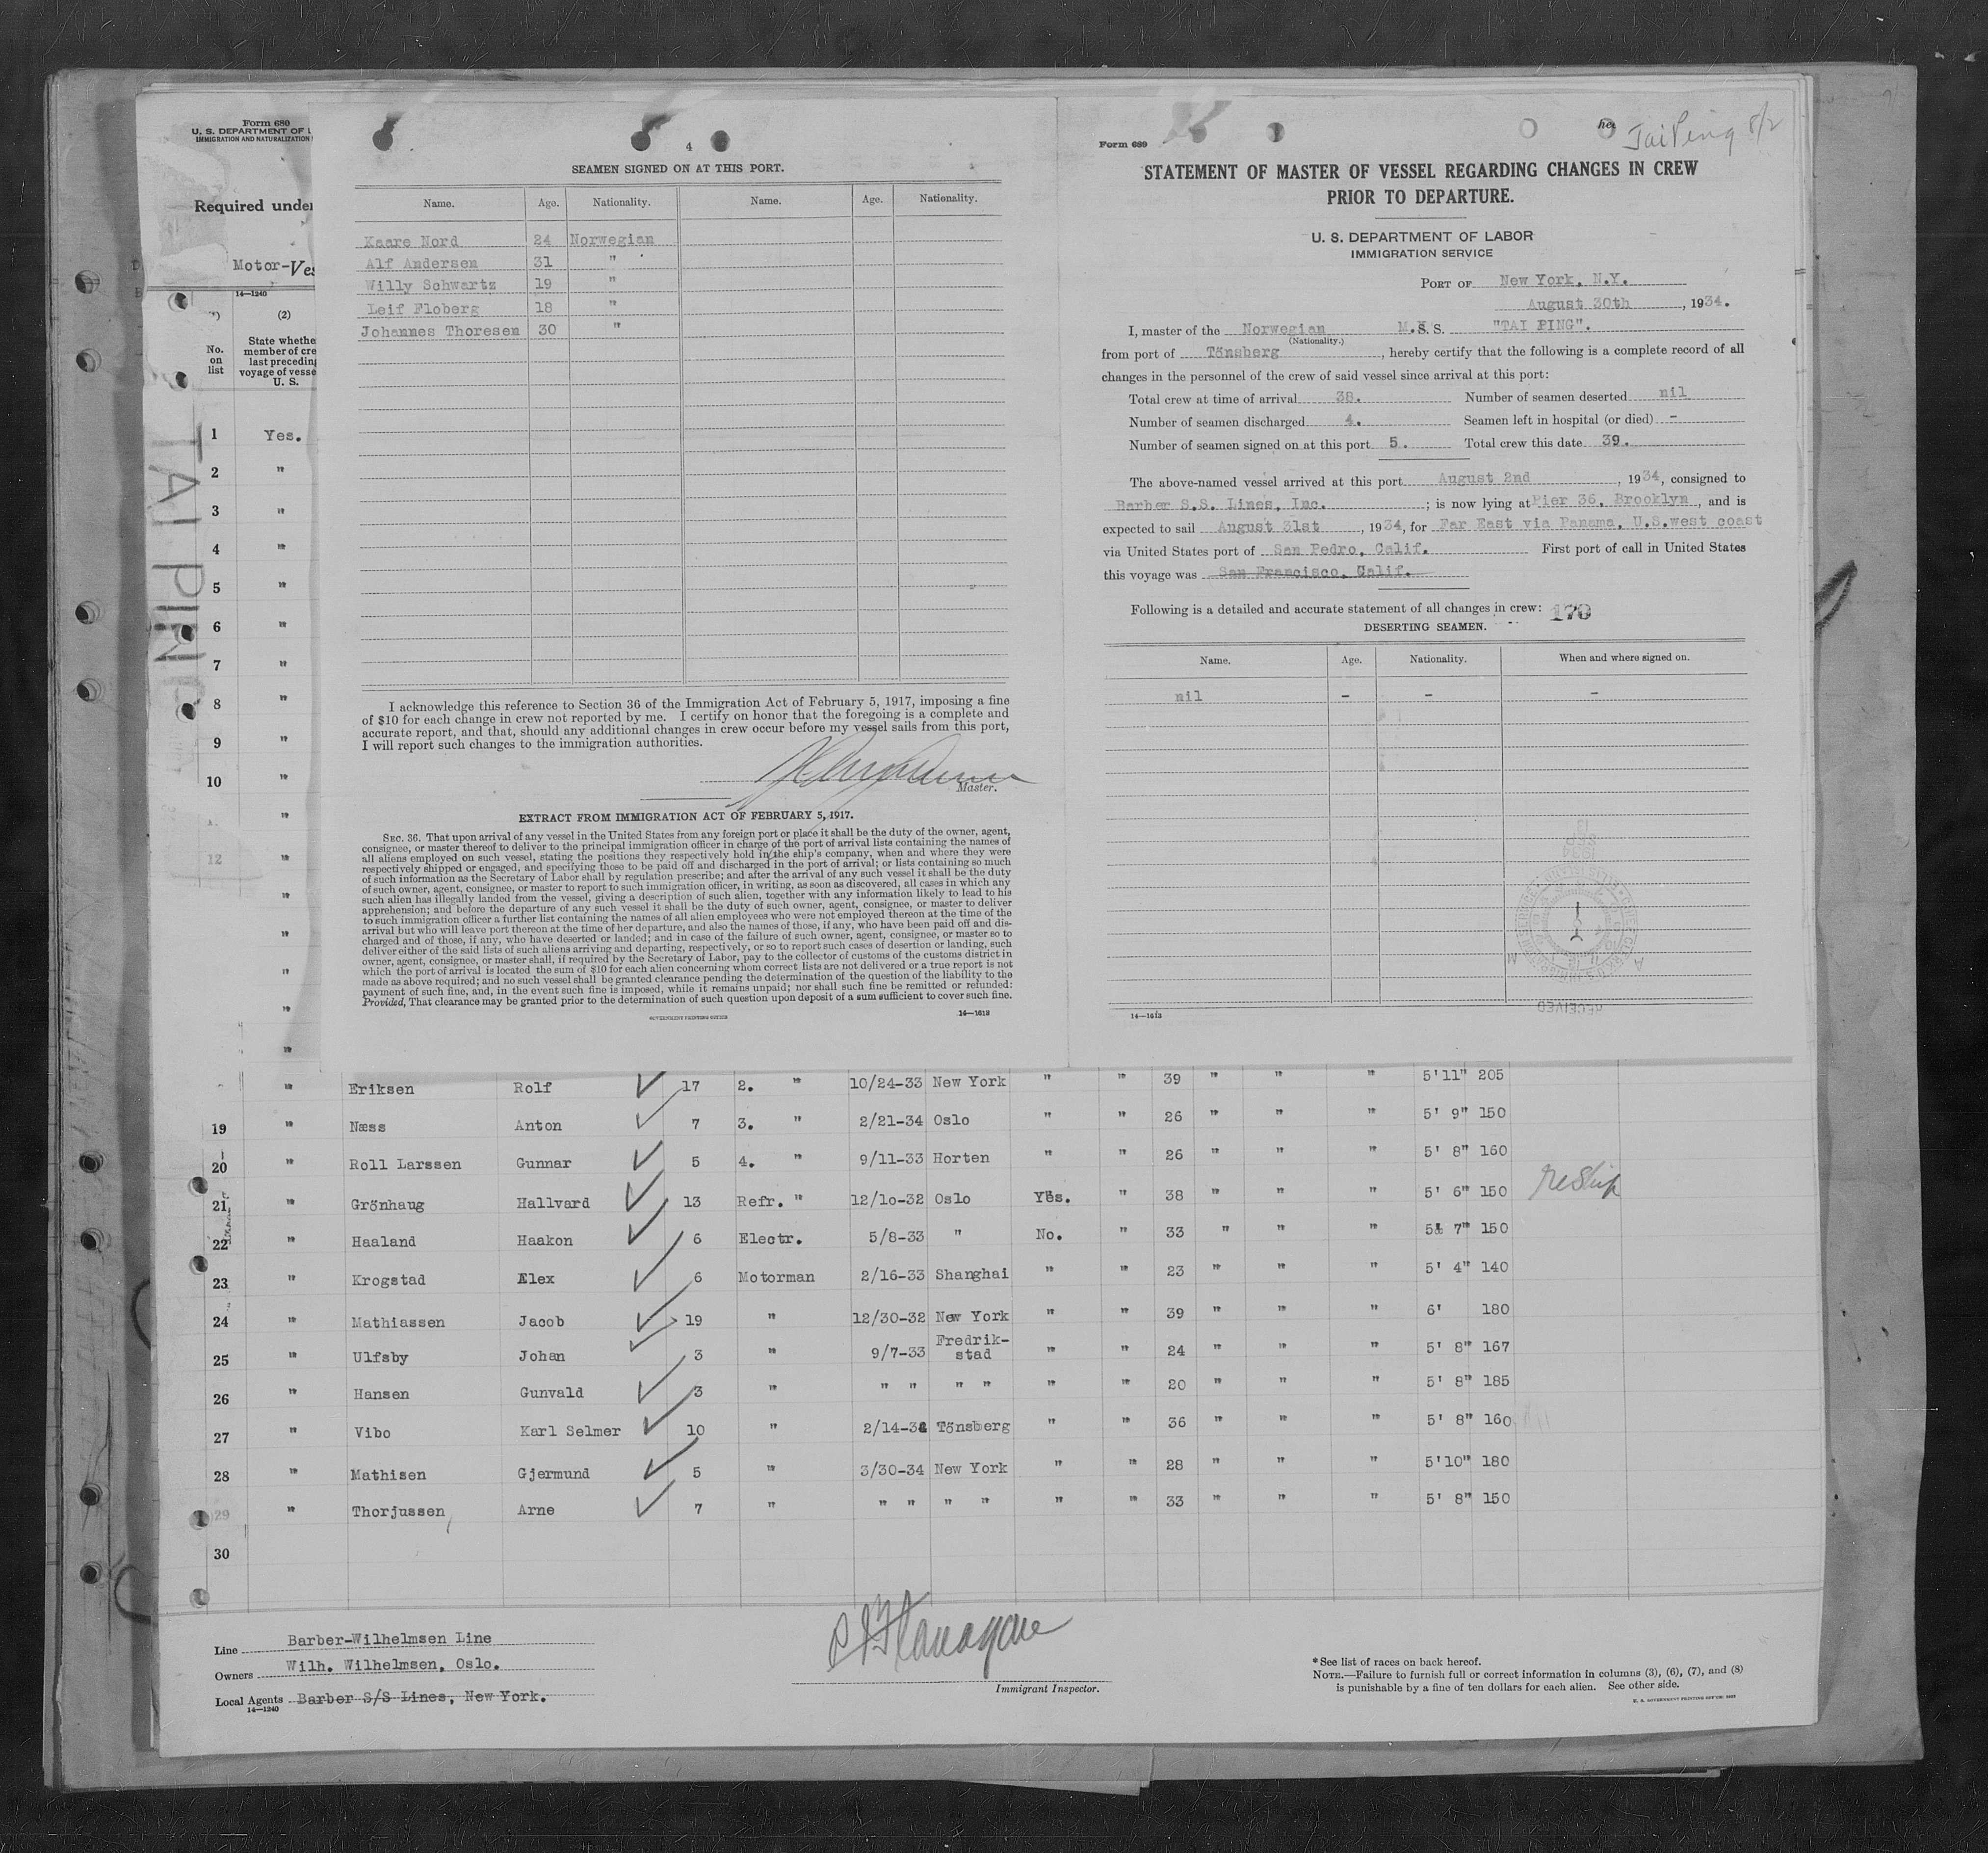 Form 680
U. S. DEPARTMENT OF L
IMMIGRATION AND NATURALIZATION
Required under
Motor-Ves
14—1240
(2)
No. on list
State whethe
member of cre
last preceding
voyage of vesse
U. S.
TAI PING
1 Yes.
2 "
3 "
4 "
5 "
6 "
7 "
8 "
9 "
10 "
"
12 "
"
"
"
"
"
4
SEAMEN SIGNED ON AT THIS PORT.
Name. Age. Nationality. Name. Age. Nationality.
Kaare Nord 24 Norwegian
Alf Andersen 31 "
Willy Schwartz 19 "
Leif Floberg 18 "
Johannes Thoresen 30 "
I acknowledge this reference to Section 36 of the Immigration Act of February 5, 1917, imposing a fine
of $10 for each change in crew not reported by me. I certify on honor that the foregoing is a complete and
accurate report, and that, should any additional changes in crew occur before my vessel sails from this port,
I will report such changes to the immigration authorities.
Master.
EXTRACT FROM IMMIGRATION ACT OF FEBRUARY 5, 1917.
SEC. 36. That upon arrival of any vessel in the United States from any foreign port or place it shall be the duty of the owner, agent,
consignee, or master thereof to deliver to the principal immigration officer in charge of the port of arrival lists containing the names of
all aliens employed on such vessel, stating the positions they respectively hold in the ship's company, when and where they were
respectively shipped or engaged, and specifying those to be paid off and discharged in the port of arrival; or lists containing so much
of such information as the Secretary of Labor shall by regulation prescribe; and after the arrival of any such vessel it shall be the duty
of such owner, agent, consignee, or master to report to such immigration officer, in writing, as soon as discovered, all cases in which any
such alien has illegally landed from the vessel, giving a description of such alien, together with any information likely to lead to his
apprehension; and before the departure of any such vessel it shall be the duty of such owner, agent, consignee, or master to deliver
to such immigration officer a further list containing the names of all alien employees who were not employed thereon at the time of the
arrival but who will leave port thereon at the time of her departure, and also the names of those, if any, who have been paid off and dis-
charged and of those, if any, who have deserted or landed; and in case of the failure of such owner, agent, consignee, or master so to
deliver either of the said lists of such aliens arriving and departing, respectively, or so to report such cases of desertion or landing, such
owner, agent, consignee, or master shall, if required by the Secretary of Labor, pay to the collector of customs of the customs district in
which the port of arrival is located the sum of $10 for each alien concerning whom correct lists are not delivered or a true report is not
made as above required; and no such vessel shall be granted clearance pending the determination of the question of the liability to the
payment of such fine, and, in the event such fine is imposed, while it remains unpaid; nor shall such fine be remitted or refunded:
Provided, That clearance may be granted prior to the determination of such question upon deposit of a sum sufficient to cover such fine.
GOVERNMENT PRINTING OFFICE
14—1613
Tai Ping 8/2
Form 689
STATEMENT OF MASTER OF VESSEL REGARDING CHANGES IN CREW
PRIOR TO DEPARTURE.
U. S. DEPARTMENT OF LABOR
IMMIGRATION SERVICE
PORT OF New York, N.Y.
August 30th, 1934.
I, master of the Norwegian M.S. S. "TAI PING".
(Nationality.)
from port of Tönsberg, hereby certify that the following is a complete record of all
changes in the personnel of the crew of said vessel since arrival at this port:
Total crew at time of arrival 38. Number of seamen deserted nil
Number of seamen discharged 4. Seamen left in hospital (or died) -
Number of seamen signed on at this port 5. Total crew this date 39.
The above-named vessel arrived at this port August 2nd, 1934, consigned to
Barber S.S. Lines, Inc.; is now lying at Pier 36, Brooklyn, and is
expected to sail August 31st, 1934, for Far East via Panama, U.S.west coast
via United States port of San Pedro, Calif. First port of call in United States
this voyage was San Francisco, Calif.
Following is a detailed and accurate statement of all changes in crew: 170
DESERTING SEAMEN.
Name. Age. Nationality. When and where signed on.
nil - - -
RECEIVED
14—1613
" Eriksen Rolf 17 2. " 10/24-33 New York " " 39 " " " 5'11" 205
19 " Næss Anton 7 3. " 2/21-34 Oslo " " 26 " " " 5' 9" 150
20 " Roll Larssen Gunnar 5 4. " 9/11-33 Horten " " 26 " " " 5' 8" 160
21 " Grönhaug Hallvard 13 Refr. " 12/10-32 Oslo Yes. " 38 " " " 5' 6" 150 Reship
22 " Haaland Haakon 6 Electr. 5/8-33 " No. " 33 " " " 5' 7" 150
23 " Krogstad Alex 6 Motorman 2/16-33 Shanghai " " 23 " " " 5' 4" 140
24 " Mathiassen Jacob 19 " 12/30-32 New York " " 39 " " " 6' 180
25 " Ulfsby Johan 3 " 9/7-33 Fredrik-stad " " 24 " " " 5' 8" 167
26 " Hansen Gunvald 3 " " " " " " " 20 " " " 5' 8" 185
27 " Vibo Karl Selmer 10 " 2/14-34 Tönsberg " " 36 " " " 5' 8" 160
28 " Mathisen Gjermund 5 " 3/30-34 New York " " 28 " " " 5'10" 180
29 " Thorjussen Arne 7 " " " " " " " 33 " " " 5' 8" 150
30
Line Barber-Wilhelmsen Line
Owners Wilh. Wilhelmsen, Oslo.
Local Agents Barber S/S Lines, New York.
14—1240
Flanagan
Immigrant Inspector.
*See list of races on back hereof.
NOTE.—Failure to furnish full or correct information in columns (3), (6), (7), and (8)
is punishable by a fine of ten dollars for each alien. See other side.
U. S. GOVERNMENT PRINTING OFFICE